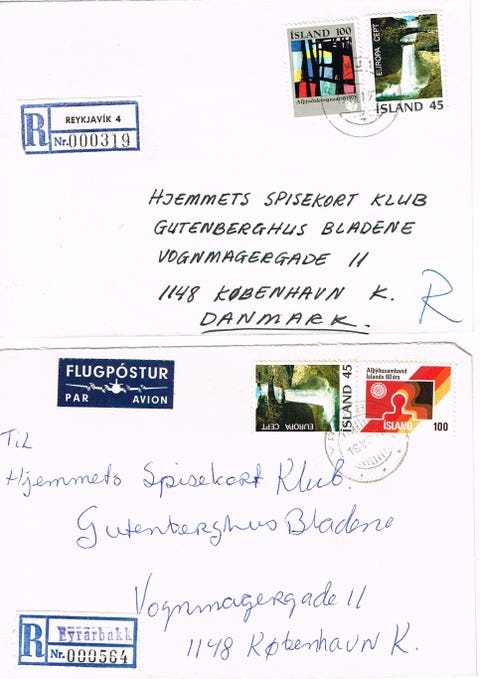 ÍSLAND 100
EUROPA CEPT
ÍSLAND 45
R
REYKJAVÍK 4
Nr. 000319
HJEMMETS SPISEKORT KLUB
GUTENBERGHUS BLADENE
VOGNMAGERGADE 11
1148 KØBENHAVN K.
DANMARK.
R
FLUGPÓSTUR
PAR AVION
EUROPA CEPT
ÍSLAND 45
Alþýðusamband
Íslands 60 ára
ÍSLAND
100
Til
Hjemmets Spisekort Klub.
Gutenberghus Bladene
Vognmagergade 11
1148 København K.
R
Eyrarbakk
Nr. 000564